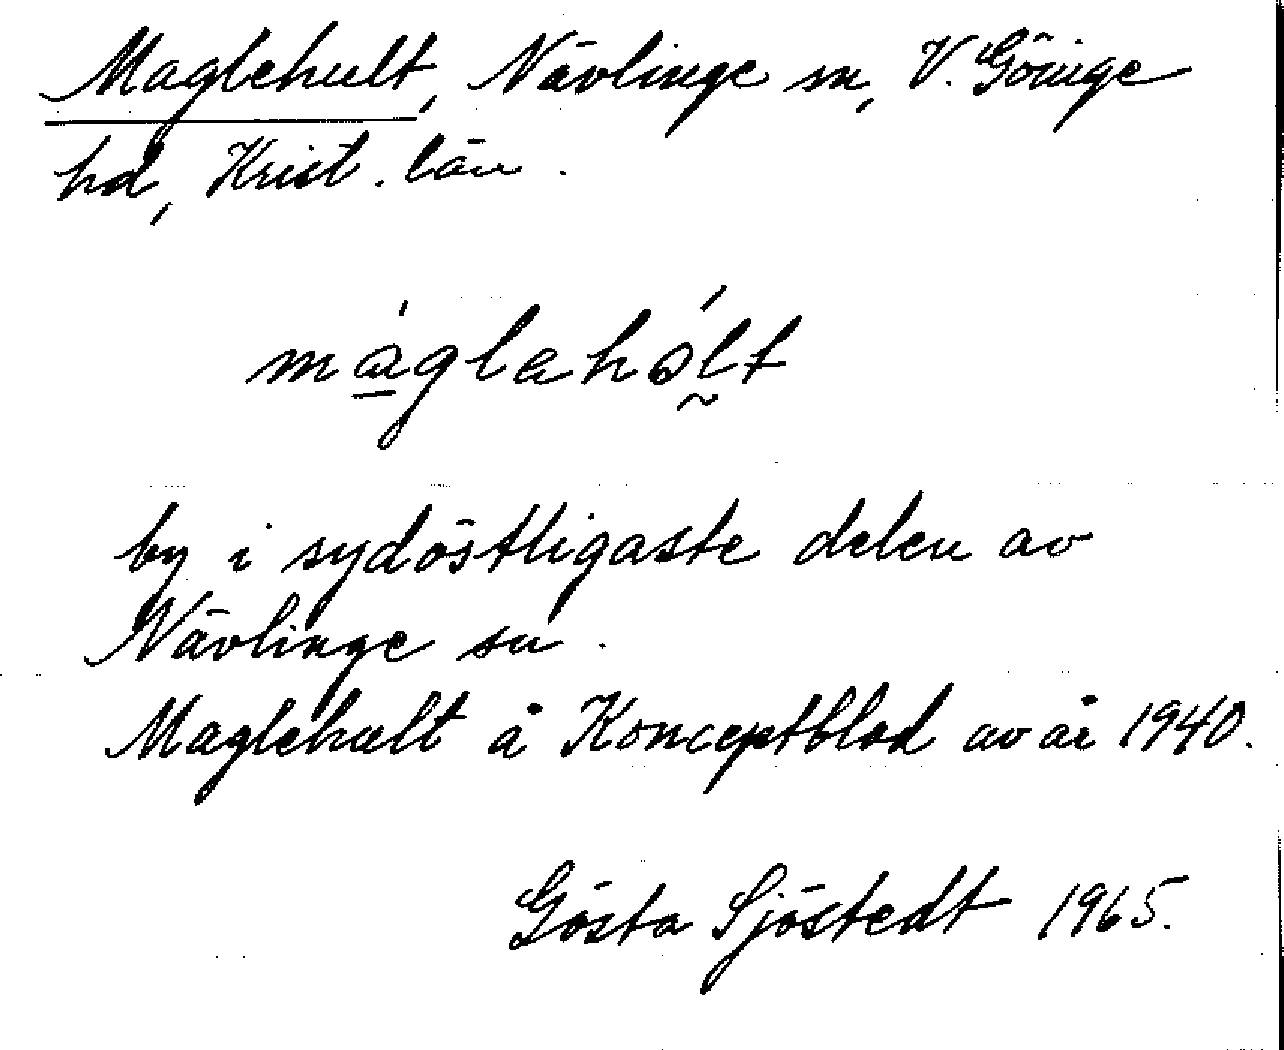 Maglehult, Nävlinge sn, V. Göinge
hd, Krist. län.
máglahólt
by i sydöstligaste delen av
Nävlinge sn.
Maglehult å Konceptblad av år 1940.
Gösta Sjöstedt 1965.